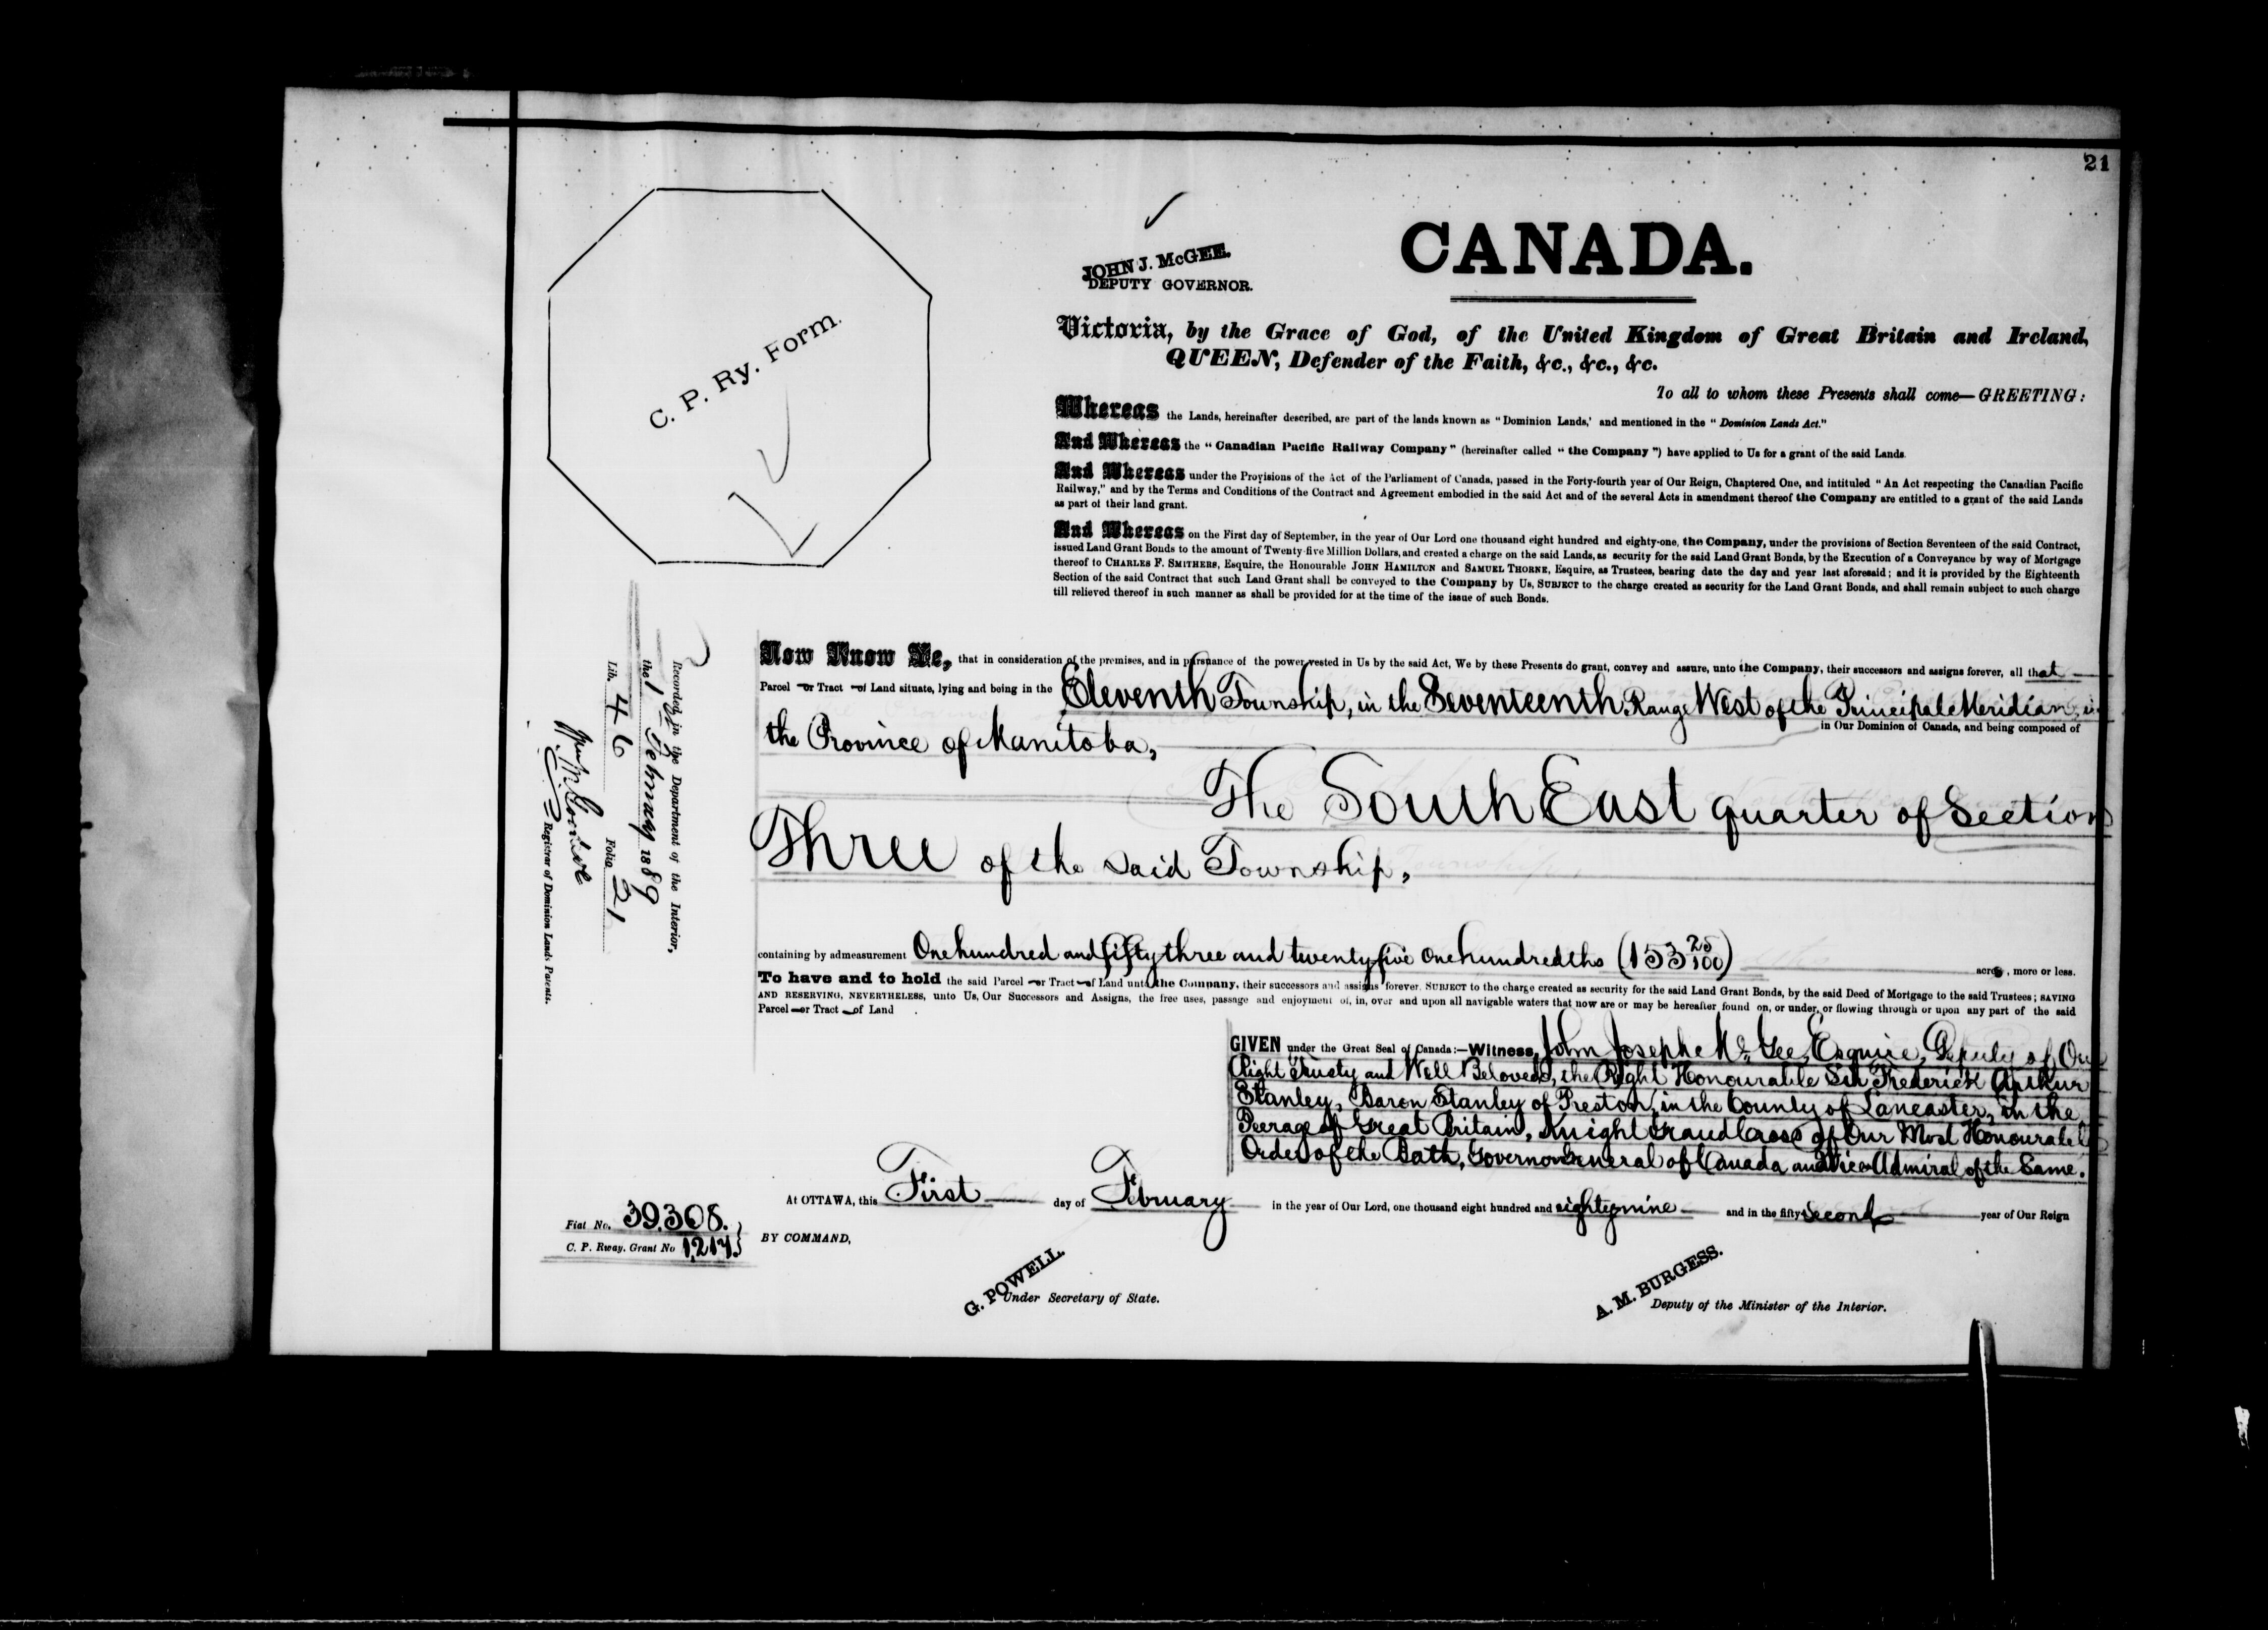 21
CANADA.
JOHN J. McGEE.
DEPUTY GOVERNOR.
C. P. Ry. Form.
Victoria, by the Grace of God, of the United Kingdom of Great Britain and Ireland,
QUEEN, Defender of the Faith, &c., &c., &c.
To all to whom these Presents shall come—GREETING:
Whereas the Lands, hereinafter described, are part of the lands known as "Dominion Lands,' and mentioned in the "Dominion Lands Act."
And Whereas the "Canadian Pacific Railway Company" (hereinafter called "the Company") have applied to Us for a grant of the said Lands.
And Whereas under the Provisions of the Act of the Parliament of Canada, passed in the Forty-fourth year of Our Reign, Chaptered One, and intituled "An Act respecting the Canadian Pacific
Railway," and by the Terms and Conditions of the Contract and Agreement embodied in the said Act and of the several Acts in amendment thereof the Company are entitled to a grant of the said Lands
as part of their land grant.
And Whereas on the First day of September, in the year of Our Lord one thousand eight hundred and eighty-one, the Company, under the provisions of Section Seventeen of the said Contract,
issued Land Grant Bonds to the amount of Twenty-five Million Dollars, and created a charge on the said Lands, as security for the said Land Grant Bonds, by the Execution of a Conveyance by way of Mortgage
thereof to CHARLES F. SMITHERS, Esquire, the Honourable JOHN HAMILTON and SAMUEL THORNE, Esquire, as Trustees, bearing date the day and year last aforesaid; and it is provided by the Eighteenth
Section of the said Contract that such Land Grant shall be conveyed to the Company by Us, SUBJECT to the charge created as security for the Land Grant Bonds, and shall remain subject to such charge
till relieved thereof in such manner as shall be provided for at the time of the issue of such Bonds.
Now Know Ye, that in consideration of the premises, and in pursuance of the power vested in Us by the said Act, We by these Presents do grant, convey and assure, unto the Company, their successors and assigns forever, all that
Parcel or Tract of Land situate, lying and being in the Eleventh Township, in the Seventeenth Range West of the Principal Meridian, in
the Province of Manitoba, in Our Dominion of Canada, and being composed of
The South East quarter of Section
Three of the said Township,
containing by admeasurement One hundred and fifty three and twenty five one hundredths (153 25/100) acres, more or less.
To have and to hold the said Parcel or Tract of Land unto the Company, their successors and assigns forever, SUBJECT to the charge created as security for the said Land Grant Bonds, by the said Deed of Mortgage to the said Trustees; SAVING
AND RESERVING, NEVERTHELESS, unto Us, Our Successors and Assigns, the free uses, passage and enjoyment of, in, over and upon all navigable waters that now are or may be hereafter found on, or under, or flowing through or upon any part of the said
Parcel or Tract of Land .
GIVEN under the Great Seal of Canada:—Witness, John Joseph Mc Gee, Esquire, Deputy of Our
Right Trusty and Well Beloved, the Right Honourable Sir Frederick Arthur
Stanley, Baron Stanley of Preston, in the County of Lancaster, in the
Peerage of Great Britain, Knight Grand Cross of Our Most Honourable
Order of the Bath, Governor General of Canada and Vice Admiral of the Same.
At OTTAWA, this First day of February in the year of Our Lord, one thousand eight hundred and eighty nine and in the fifty second year of Our Reign
BY COMMAND,
G. POWELL.
Under Secretary of State.
A. M. BURGESS.
Deputy of the Minister of the Interior.
Fiat No. 39308.
C. P. Rway. Grant No 1,217.
Recorded in the Department of the Interior,
the 1st February 1889
Lib. 46 Folio 21
Registrar of Dominion Lands Patents.